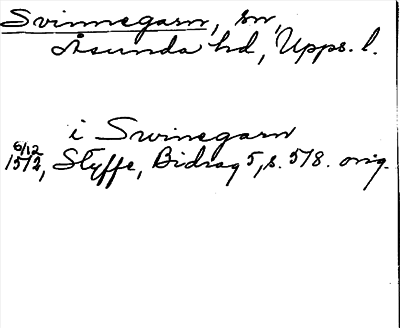 Svinnegarn, sn,
Åsunda hd, Upps. l.
i Swinegarn
6/12
1512, Styffe, Bidrag 5, s. 578. orig.